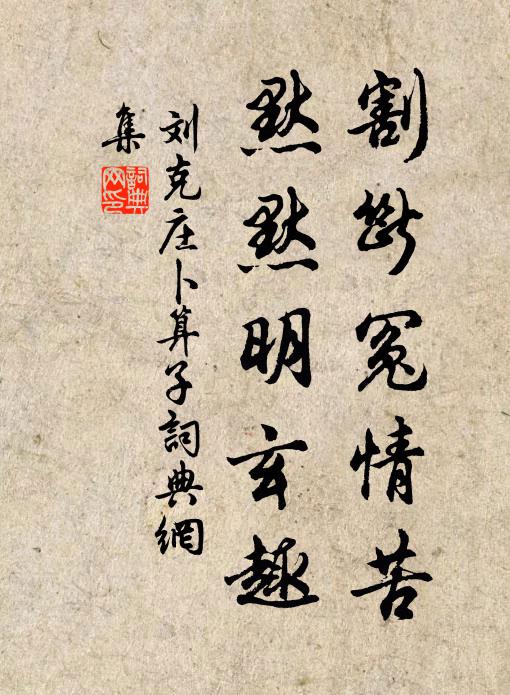 割断冤情苦
默默明玄趣
刘克庄卜算子詞典網
集
詞典網印